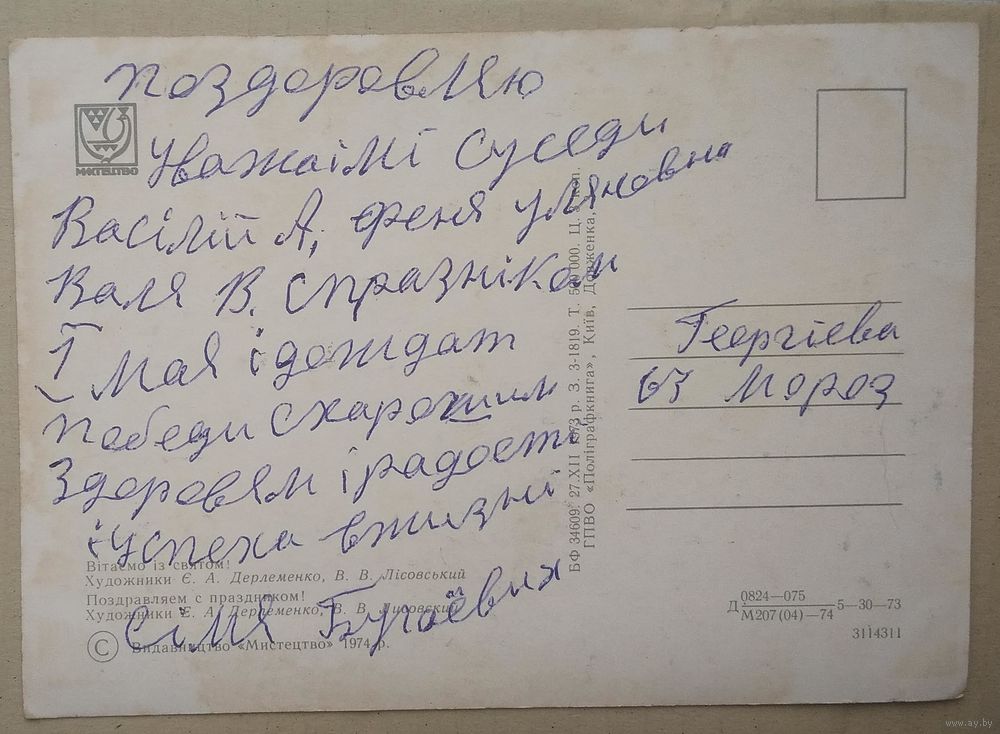 поздоровляю
Уважаімі Суседи
Васілій А, Феня Уляновна
Валя В. Спразніком
1 Мая і дождат
победи Схарошим
Здоровям і радости
і Успеха вжизні
Сімя Бугаёвих
Георгієва
67 Мороз
МИСТЕЦТВО
Вітаємо із святом!
Художники Є. А. Дерлеменко, В. В. Лісовський
Поздравляем с праздником!
Художники Е. А. Дерлеменко, В. В. Лисовский
© Видавництво «Мистецтво» 1974 р.
БФ 34609. 27.XII 1973 р. З. 3-1819. Т. 500 000. Ц. коп.
ГПВО «Поліграфкнига», Київ, Довженка,
Д 0824—075 5—30—73
М207(04)—74
3114311
www.ay.by